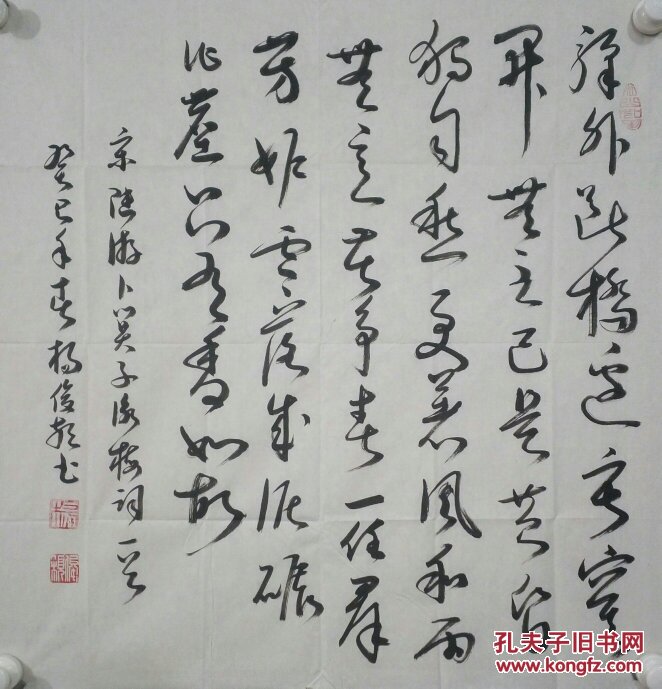 驛外斷橋邊寂寞
開無主已是黄昏
獨自愁更著風和雨
無意苦爭春一任群
芳妒零落成泥碾
作塵只有香如故
宋陸游卜算子詠梅詞一首
癸巳年春楊俊
书
孔夫子旧书网
www.kongfz.com